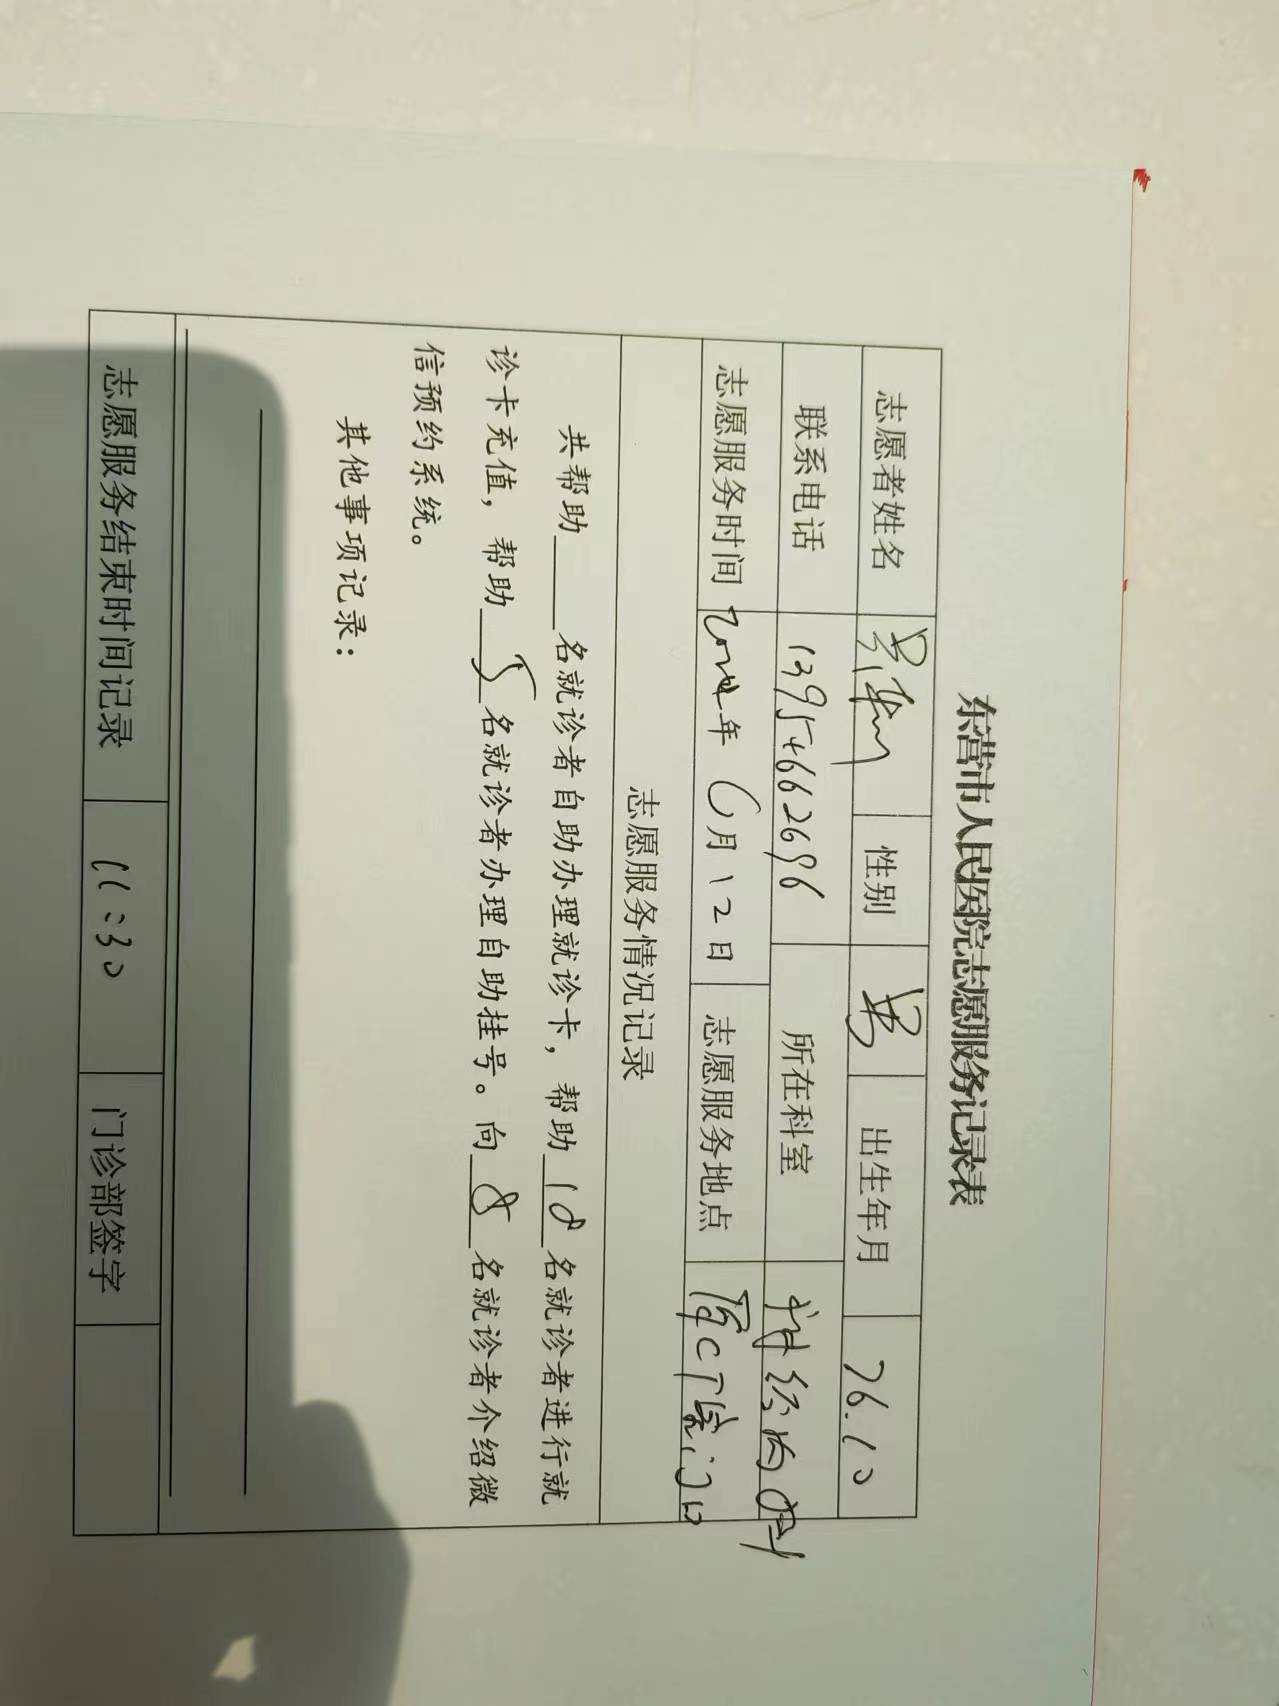 东营市人民医院志愿服务记录表
志愿者姓名 性别 男 出生年月 76.10
联系电话 13954662696 所在科室 神经内科
志愿服务时间 2024年6月12日 志愿服务地点
志愿服务情况记录
共帮助 名就诊者自助办理就诊卡，帮助10名就诊者进行就
诊卡充值，帮助5名就诊者办理自助挂号。向8名就诊者介绍微
信预约系统。
其他事项记录：
志愿服务结束时间记录 11:30 门诊部签字